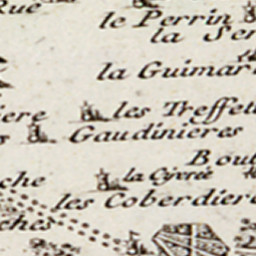 Rue
le Perrin
la Ser
la Guimar
iere
les Treffet
Gaudinieres
Bout
che
la Gyerée
les Coberdiere
ches